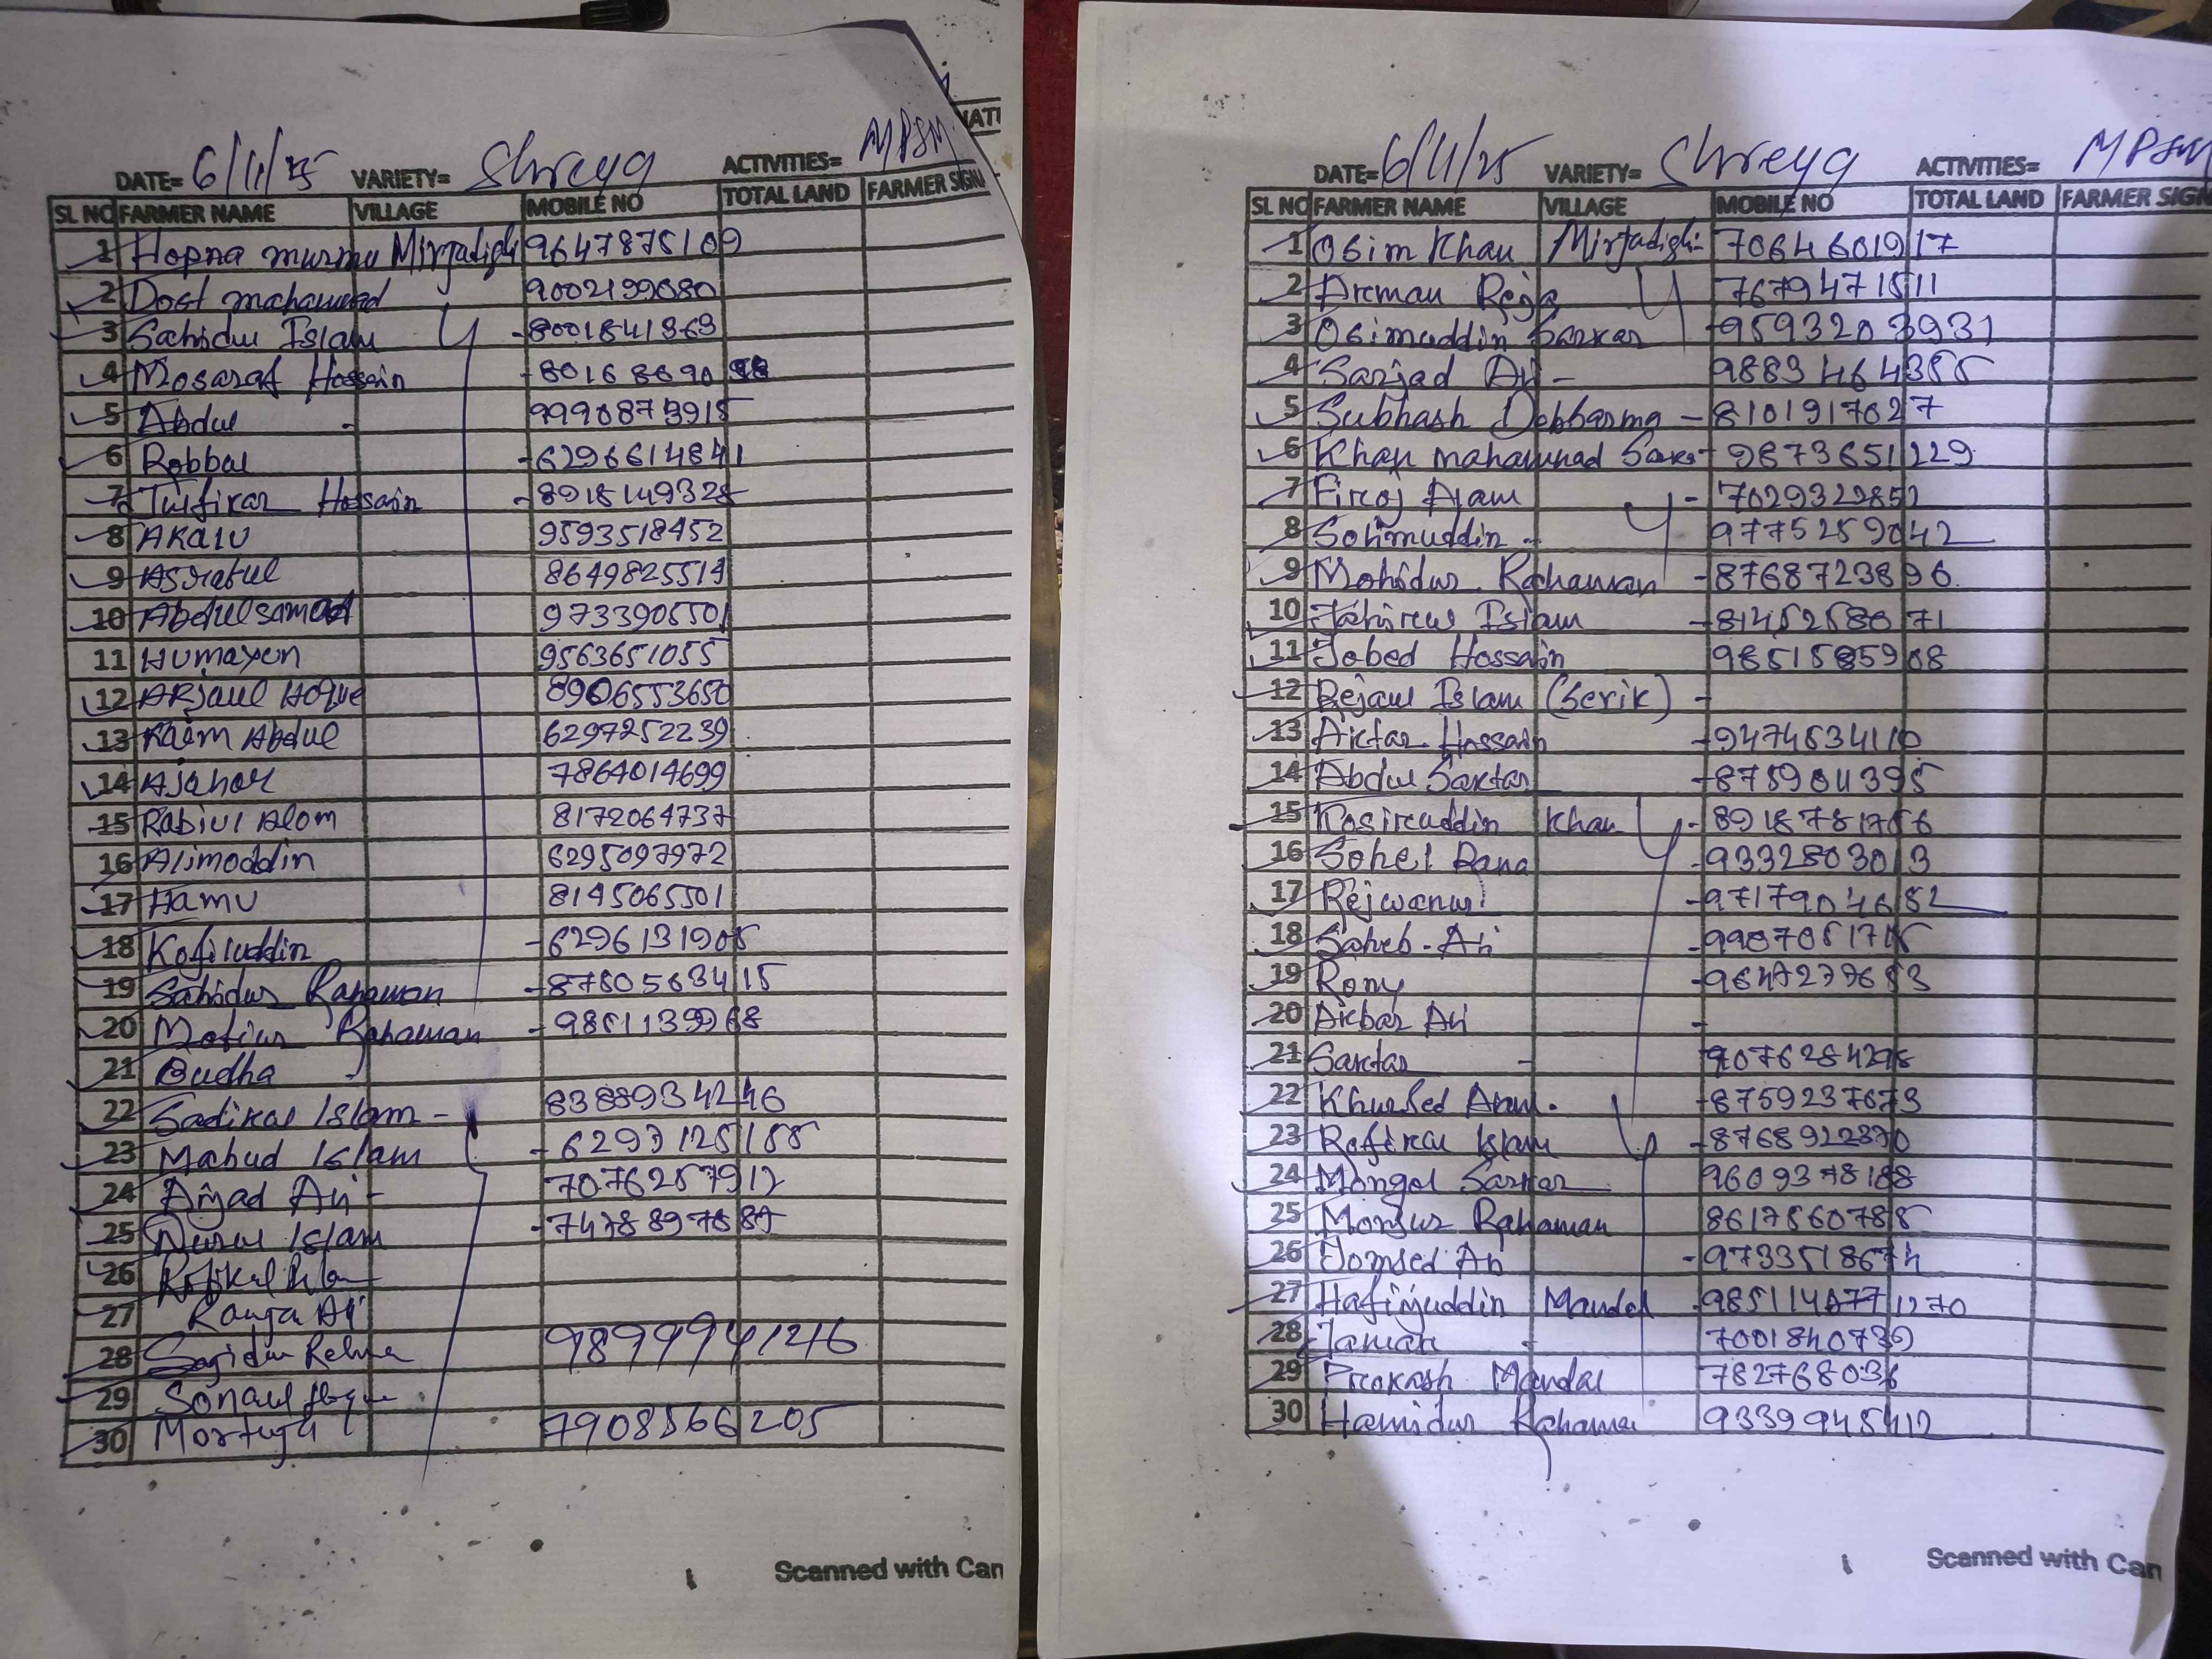 DATE= 6/11/25 VARIETY= Shreya ACTIVITIES= MPSM
SL NO FARMER NAME VILLAGE MOBILE NO TOTAL LAND FARMER SIGN
1 Hopna murmu Mirjadighi 9647875109
2 Dost mahammad 9002199080
3 Sahidul Islam 8001841363
4 Mosaraf Hossain
5 Abdul
6 Robbal 6296614841
7 Julfikar Hossain 8918149328
8 AKalu 9593518452
9 Asraful 8649825514
10 Abdulsamad 9733905501
11 Humayun 9563651055
12 ARjaul Hoque 8906553650
13 Kaim Abdul 6297252239
14 Ajahar 7864014699
15 Rabiul Alom 8172064737
16 Alimoddin 6295097972
17 Hamu 8145065501
18 Kofiluddin 6296131905
19 Sahidur Rahaman 8780563415
20 Motiur Rahaman 9851139968
21 Budha
22 Sadikul Islam - 8388934246
23 Mabud Islam 6297125155
24 Amjad Ali - 7076257912
25 Nurul Islam
26 Rofikul Islam
27 Ali
28 9899941246
29 Sonaul Hoque
30 Mortuja 7908566205
Scanned with Can
DATE= 6/11/25 VARIETY= Shreya ACTIVITIES= MPSM
SL NO FARMER NAME VILLAGE MOBILE NO TOTAL LAND FARMER SIGN
1 Osim Khan Mirjadighi 7064601917
2 Arman Reja 7679471511
3 Osimuddin Sarkar 9593203931
4 Sarjad Ali - 9883464355
5 Subhash Debbarma - 8101917027
6 Khan mahammad Sarkar 9873651229
7 Firoj Alam - 7029322852
8 Solimuddin - 9775259042
9 Mohidur Rahaman - 8768723896
10 Jahirul Islam - 8145258071
11 Jobed Hossain 9851585908
12 Rejaul Islam (Serik) -
13 Aktar Hossain - 9474634110
14 Abdul Sattar - 8759011395
15 Kosiruddin Khan - 8918781756
16 Sohel Rana - 9332803013
17 Rejwanul - 9717904682
18 Saheb Ali - 9907051715
19 Rony - 9647277683
20 Akbar Ali -
21 Sattar - 9076284298
22 Khursed Alam - 8759237673
23 Rofikul Islam - 8768922370
24 Mongol Sarkar 9609378188
25 Monjur Rahaman 8617560785
26 Jomsed Ali - 9733518674
27 Hafijuddin Mandal
28 7001840739
29 Prokash Mandal 782768036
30 Hamidur Rahaman 9339945412
Scanned with Can